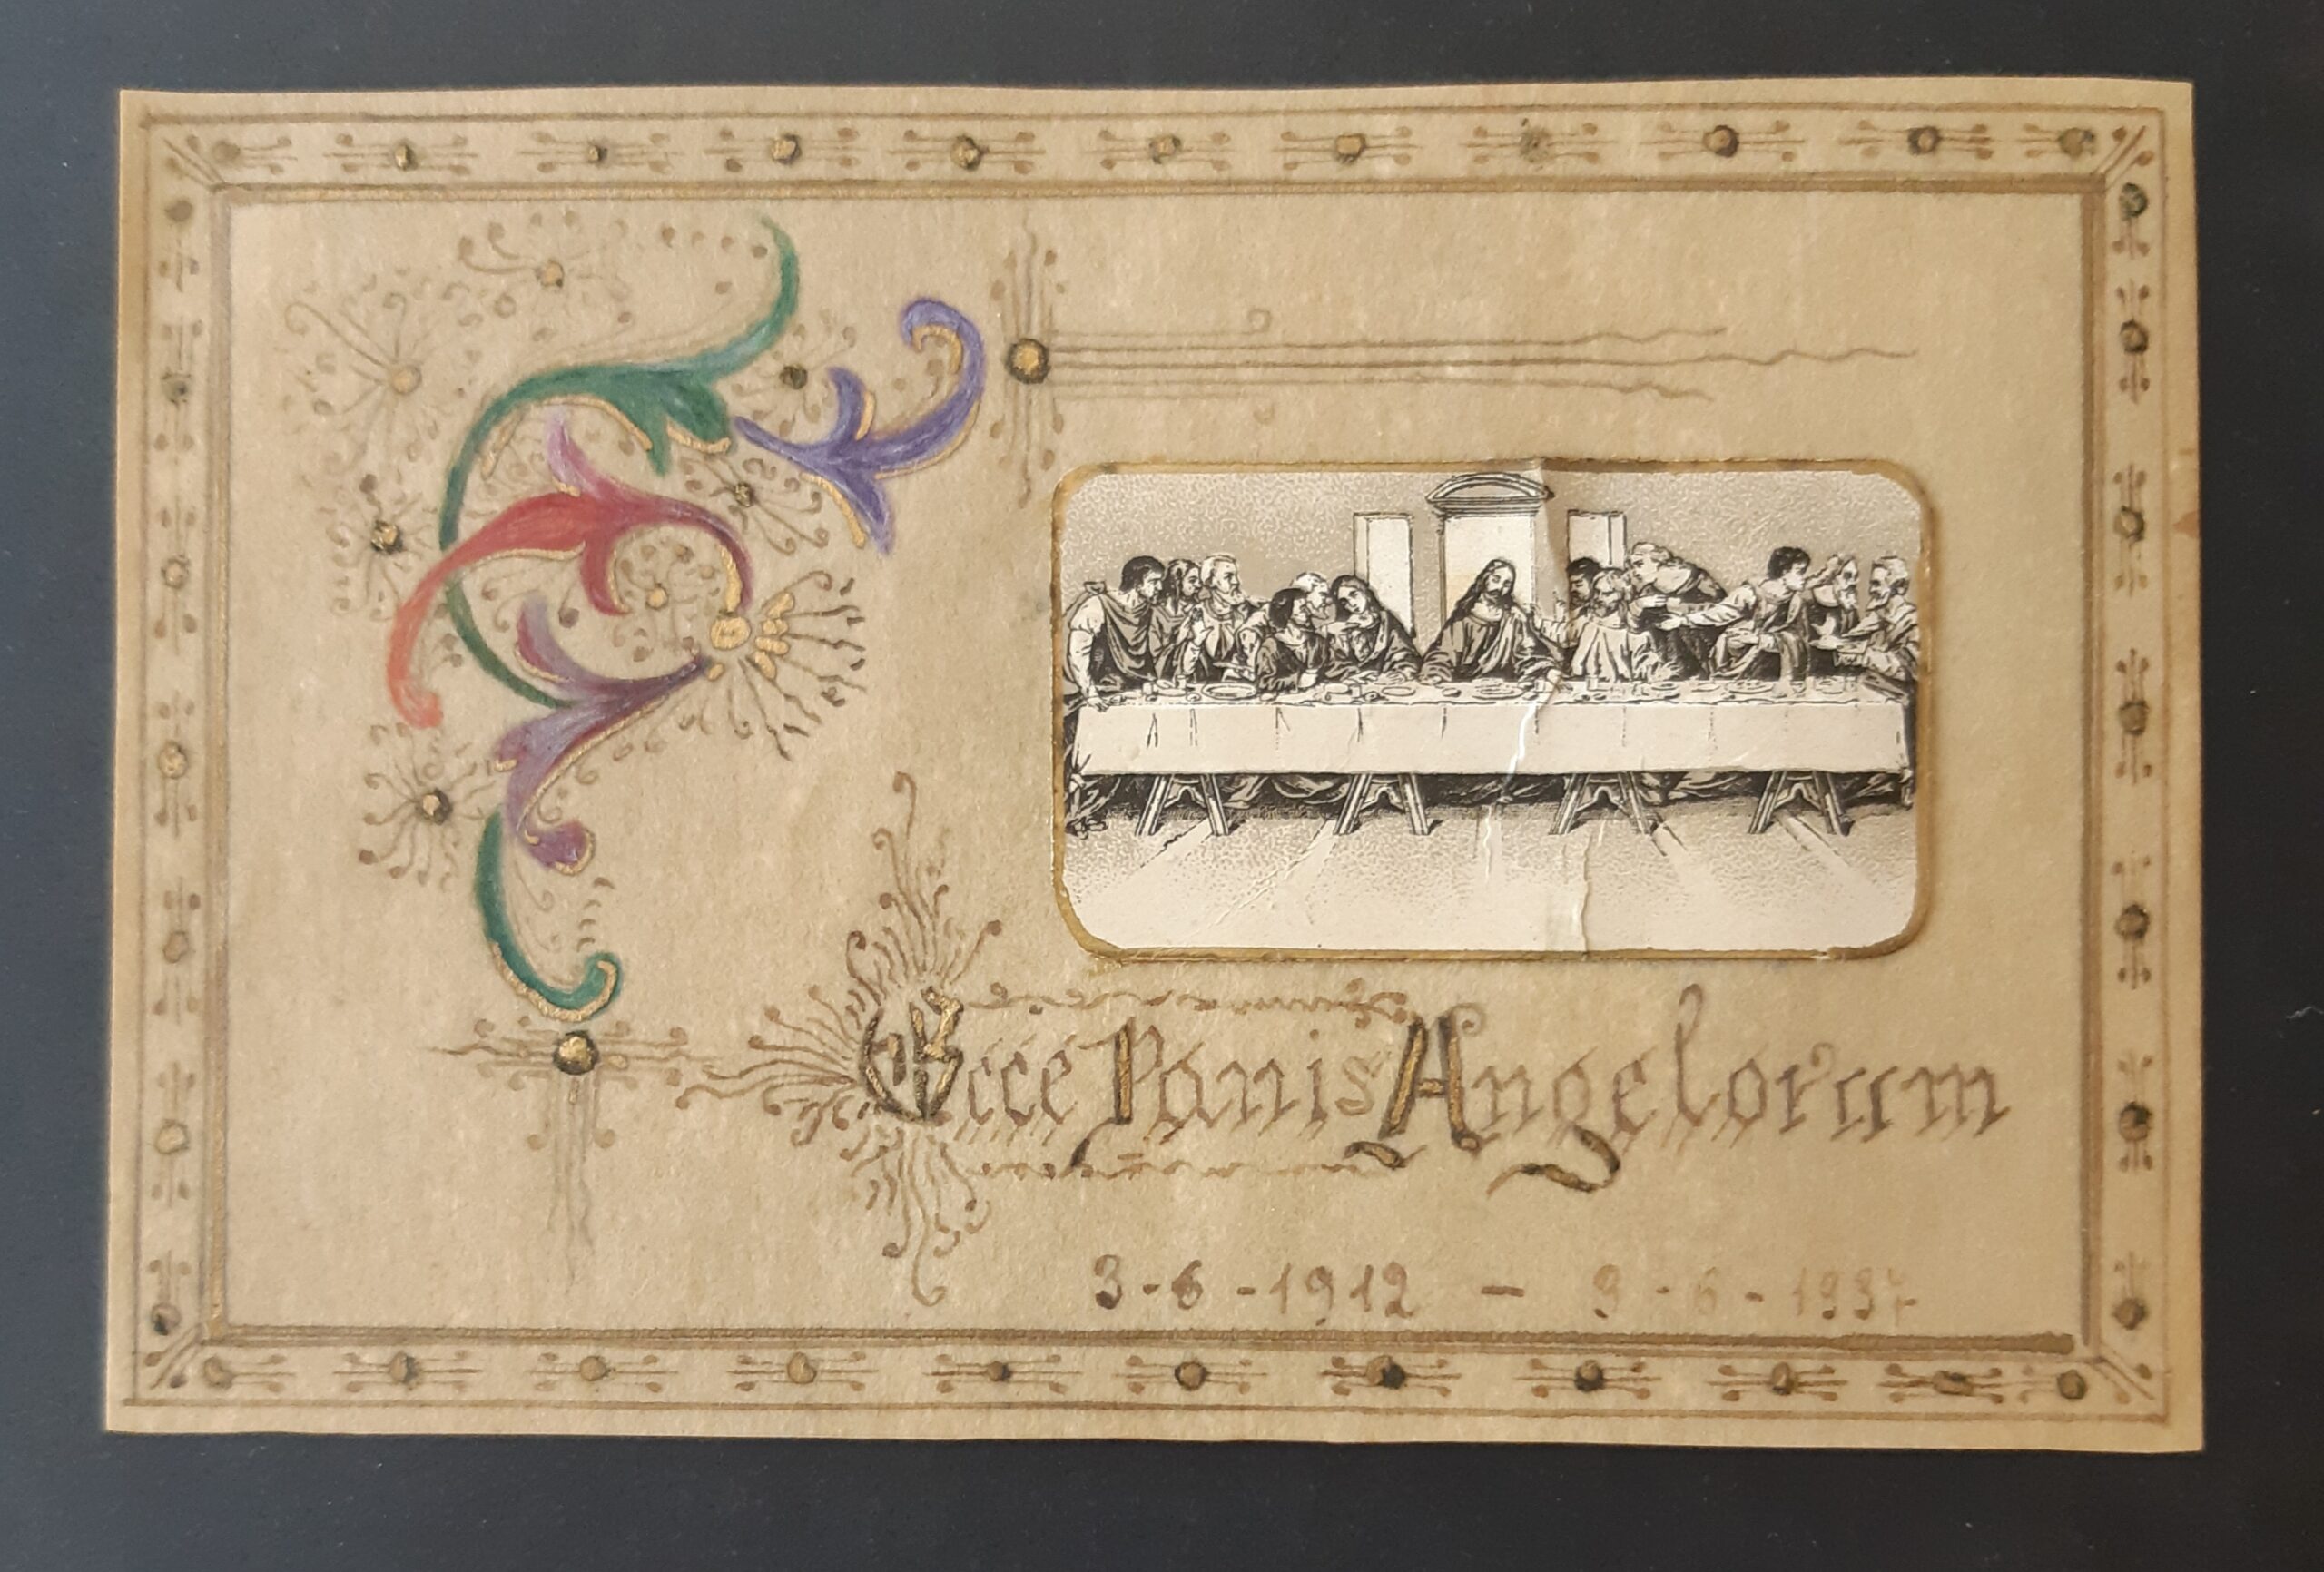 Ecce Panis Angelorum
3-6-1912 - 9-6-1937